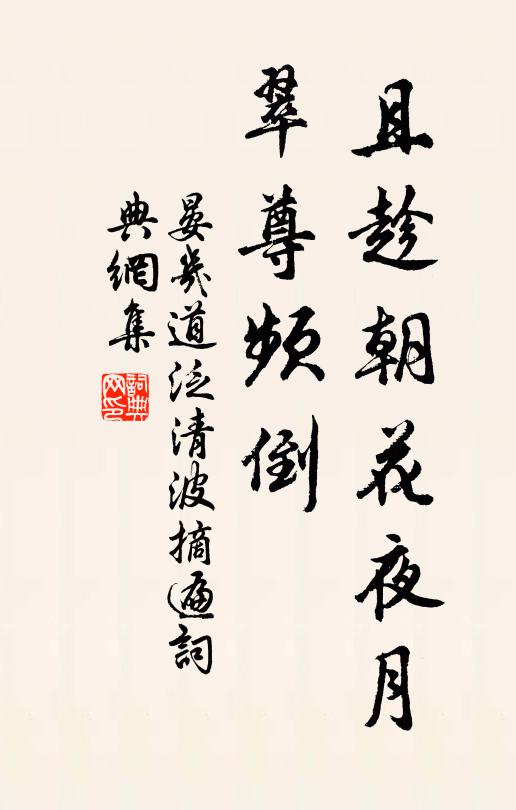 且趁朝花夜月
翠尊頻倒
晏幾道泛清波摘遍詞
典網集
詞典網印